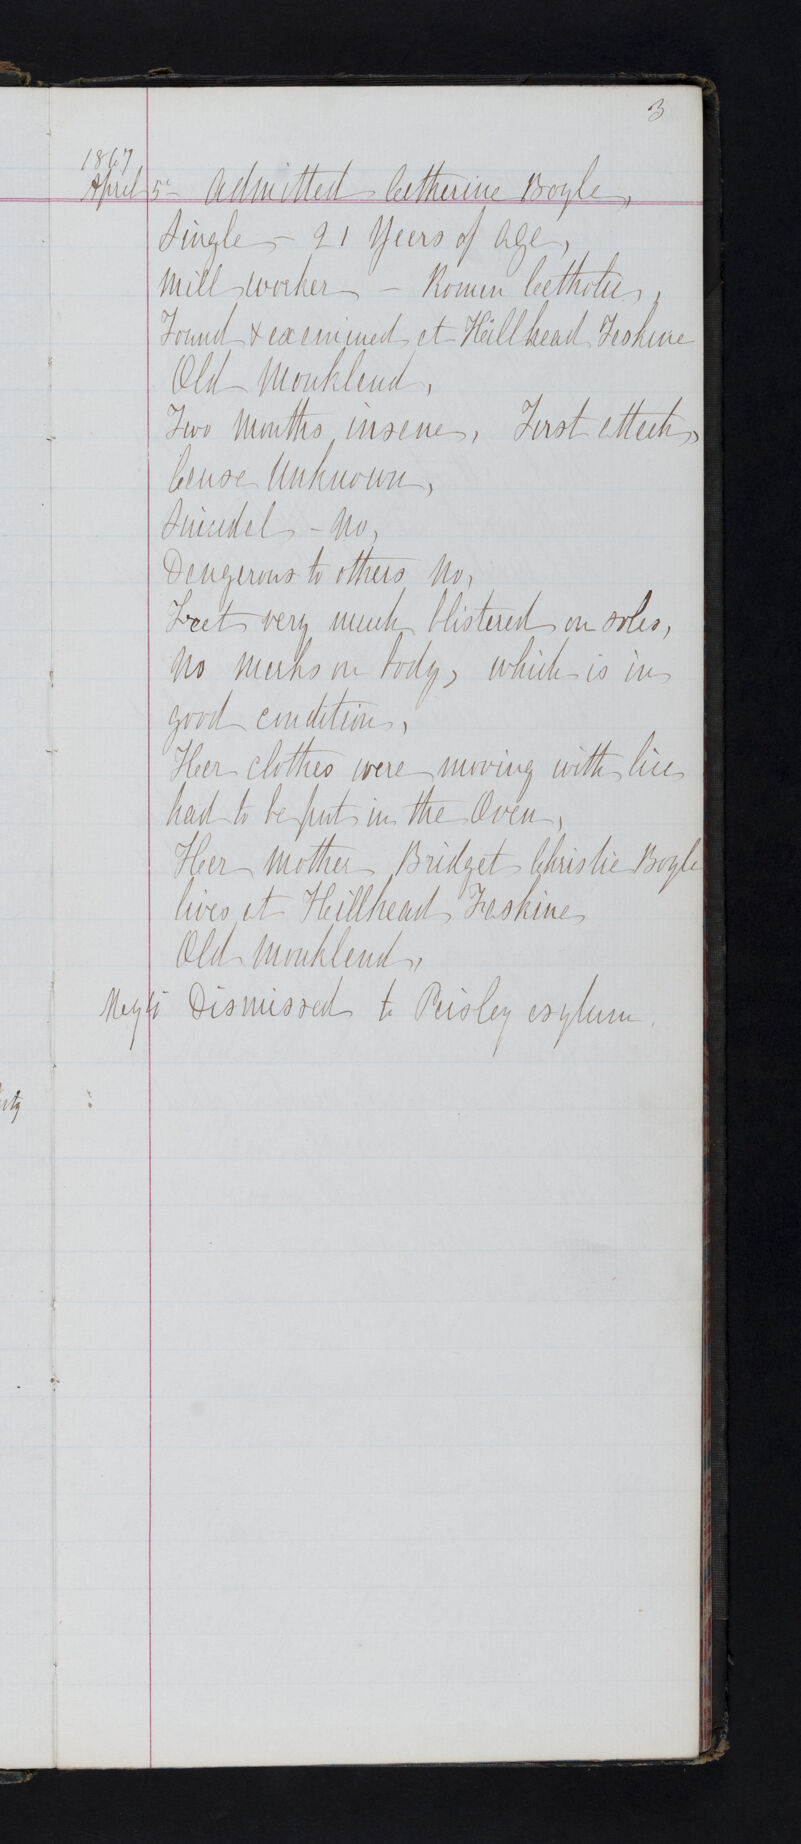 3
1867
April 5th Admitted Catherine Boyle,
Single - 21 Years of Age,
Mill worker - Roman Catholic,
Found & examined at Hillhead Faskine
Old Monkland,
Two Months insane, First attack,
Cause Unknown,
Suicidal - No,
Dangerous to others No,
Feet very much blistered on soles,
No marks on body, which is in
good condition,
Her clothes were moving with lice
had to be put in the Oven,
Her Mother Bridget Christie Boyle
lives at Hillhead Faskine
Old Monkland,
May Dismissed to Paisley asylum.